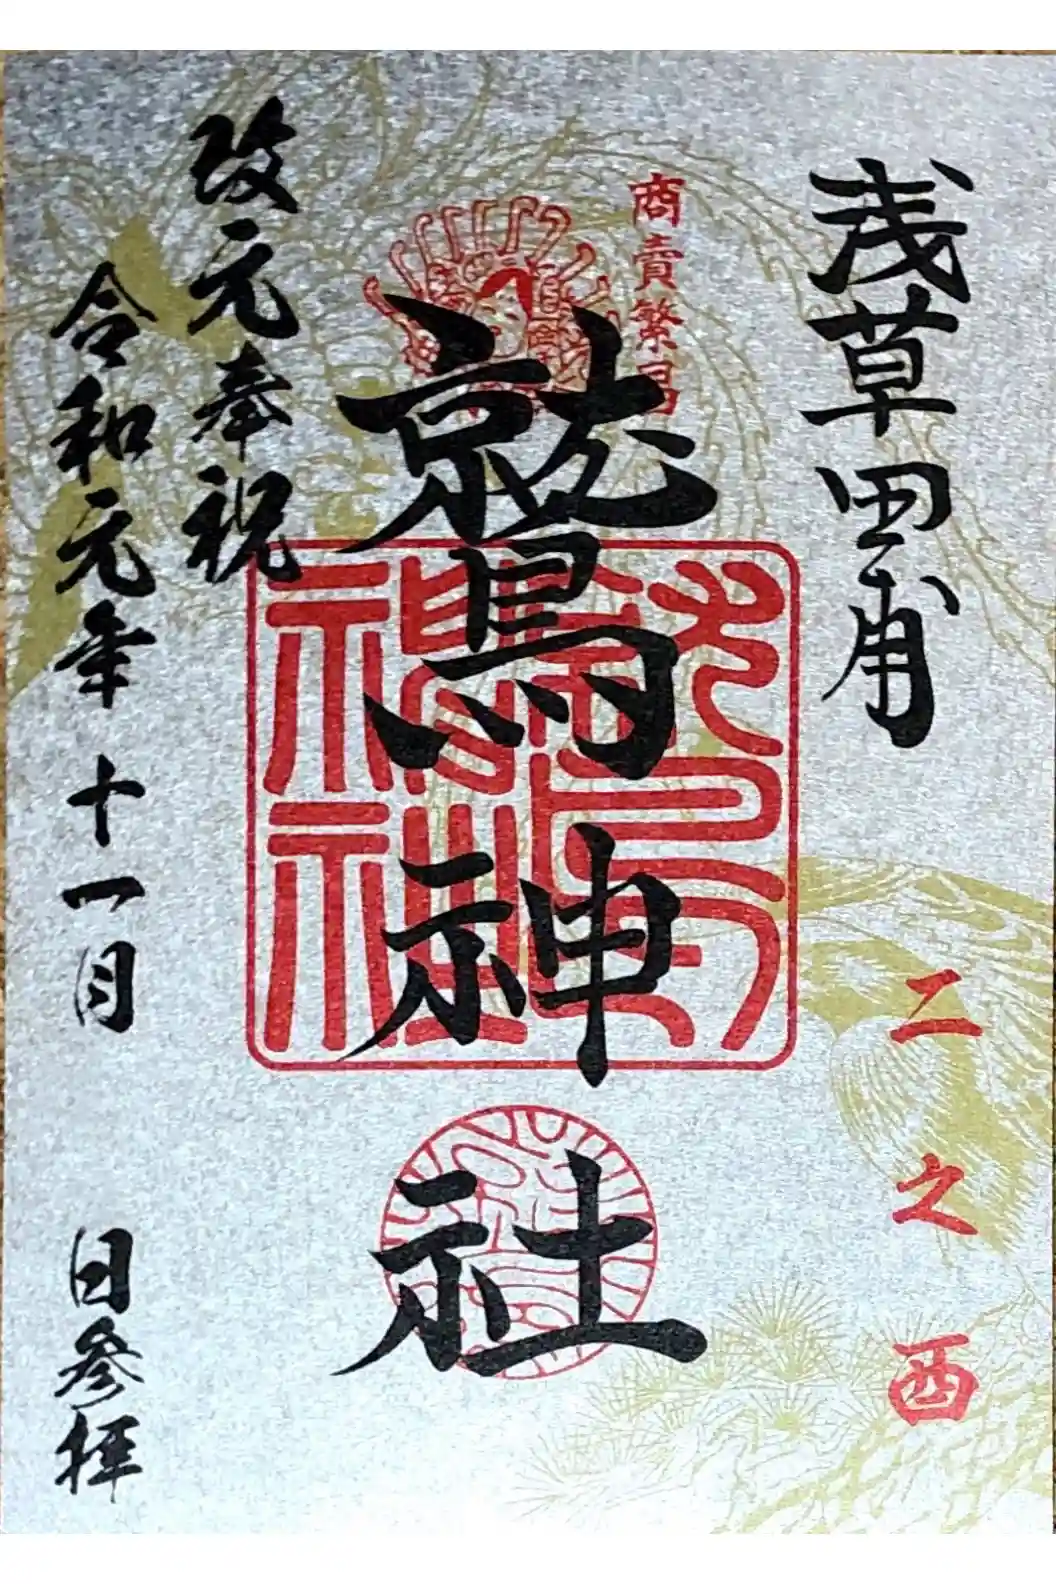 浅草田甫
二之酉
商賣繁昌
鷲神社
鷲神社
改元奉祝
令和元年十一月 日参拝